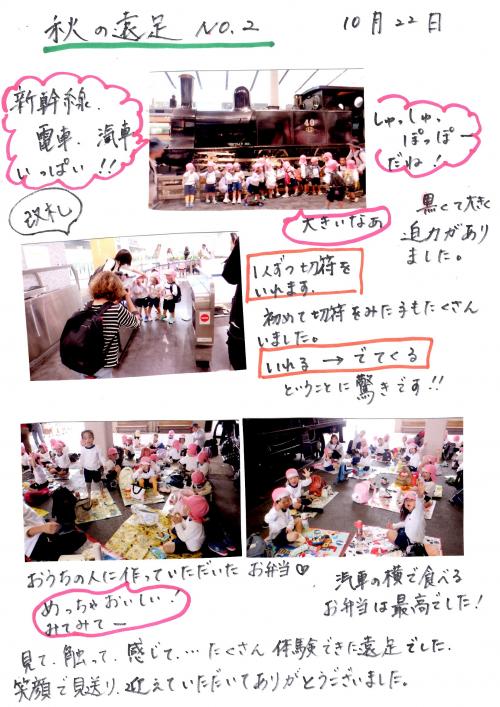 秋の遠足 NO.2
10月22日
新幹線、
電車、汽車
いっぱい!!
しゅっしゅっ
ぽっぽー
だね!
改札
大きいなあ
黒くて大きく
迫力があり
ました。
1人ずつ切符を
いれます。
初めて切符をみた子もたくさん
いました。
いれる → でてくる
ということに驚きです!!
おうちの人に作っていただいた お弁当♡
めっちゃおいしい!
みてみてー
汽車の横で食べる
お弁当は最高でした!
見て、触って、感じて、… たくさん 体験できた遠足でした。
笑顔で見送り、迎えていただいてありがとうございました。